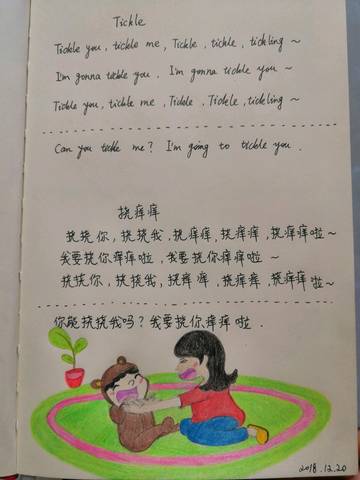 Tickle
Tickle you, tickle me, Tickle, tickle, tickling ~
I'm gonna tickle you. I'm gonna tickle you ~
Tickle you, tickle me, Tickle, Tickle, tickling ~
Can you tickle me? I'm going to tickle you.
挠痒痒
挠挠你,挠挠我,挠痒痒,挠痒痒,挠痒痒啦~
我要挠你痒痒啦,我要挠你痒痒啦~
挠挠你,挠挠我,挠痒痒,挠痒痒,挠痒痒啦~
你能挠挠我吗?我要挠你痒痒啦.
2018.12.20